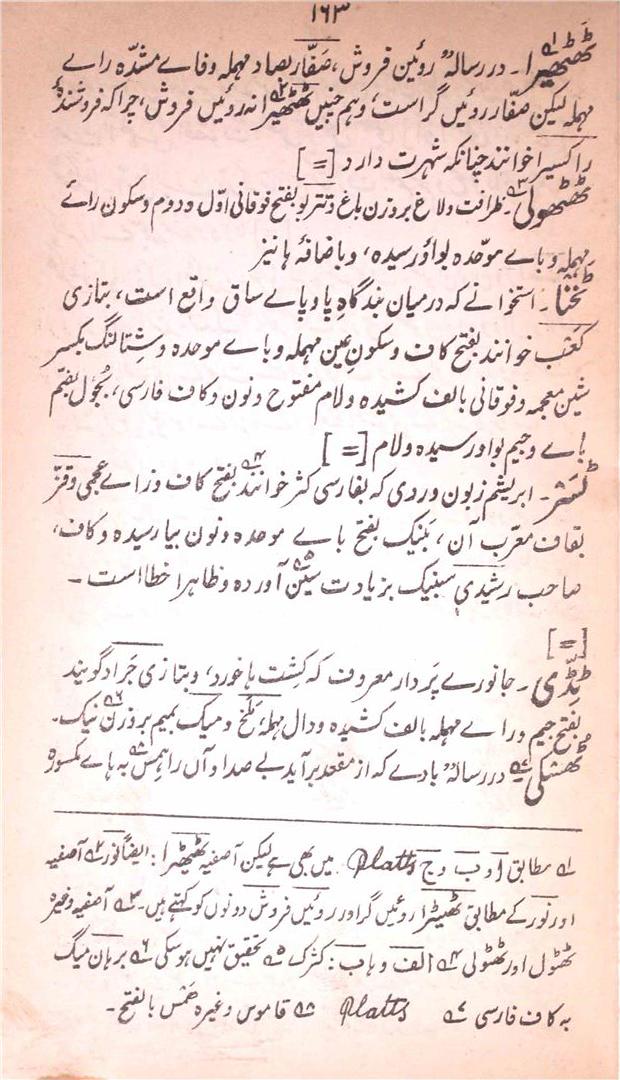 ۱۶۳
ٹھٹھیرا۔ در رسالہ روئین فروش، صفّار بصاد مہملہ و فاے مشدّہ راے
مہملہ لیکن صفّار روئیں گر است، وہم چنیں ٹھٹھیرا نہ روئیں فروش، چرا کہ فروشندۂ
را کسیرا خوانند چنانکہ شہرت دارد [=]
ٹھٹھولی۔ ظرافت ولاغ بروزن باغ و تتربو بفتح فوقانی اوّل و دوم و سکون رائے
مہملہ و باے موحّدہ بواؤ رسیدہ، و باضافۂ ہا نیز
ٹخنا۔ استخوانے کہ درمیان بندگاہِ پا و پاے ساق واقع است، بتازی
کَعْب خوانند بفتح کاف و سکونِ عین مہملہ و باے موحدہ و شِتالنگ بکسر
شین معجمہ و فوقانی بالف کشیدہ و لام مفتوح و نون و کاف فارسی، بُجُول بضم
باے و جیم بواو رسیدہ و لام [=]
ٹسر۔ ابریشم زبون وردی کہ بفارسی کثر خوانند بفتح کاف و زاے عجمی و قزّ
بقاف معرّب آن، بَنیک بفتح باے موحدہ و نون بیا رسیدہ و کاف،
صاحب رشیدی سبنیک بزیادت سین آوردہ و ظاہرا خطا است۔
[=]
ٹِڈّی۔ جانورے پَردار معروف کہ کِشت ہا خورد، و بتازی جَراد گویند
بفتح جیم و راے مہملہ بالف کشیدہ و دال مہملہ، مَلخ و میک بمیم بروزن نیک۔
در رسالہ بادے کہ از مقعد برآید بے صدا و آں را ہمس بہ ہاے مکسورہ
۱ مطابق ا و ب و ج Platts میں بھی ہے لیکن آصفیہ ٹھٹھیرا : ایضاً نور ۲ آصفیہ
اور نور کے مطابق ٹھٹھیرا روئیں گر اور روئیں فروش دونوں کو کہتے ہیں۔ ۳ آصفیہ وغیرہ
ٹھٹھول اور ٹھٹھولی ۴ الف و ہاب : کثرک ۵ تحقیق نہیں ہو سکی ۶ برہان میگ
بہ کاف فارسی ۷ Platts ۸ قاموس وغیرہ ھَمْس بالفتح۔